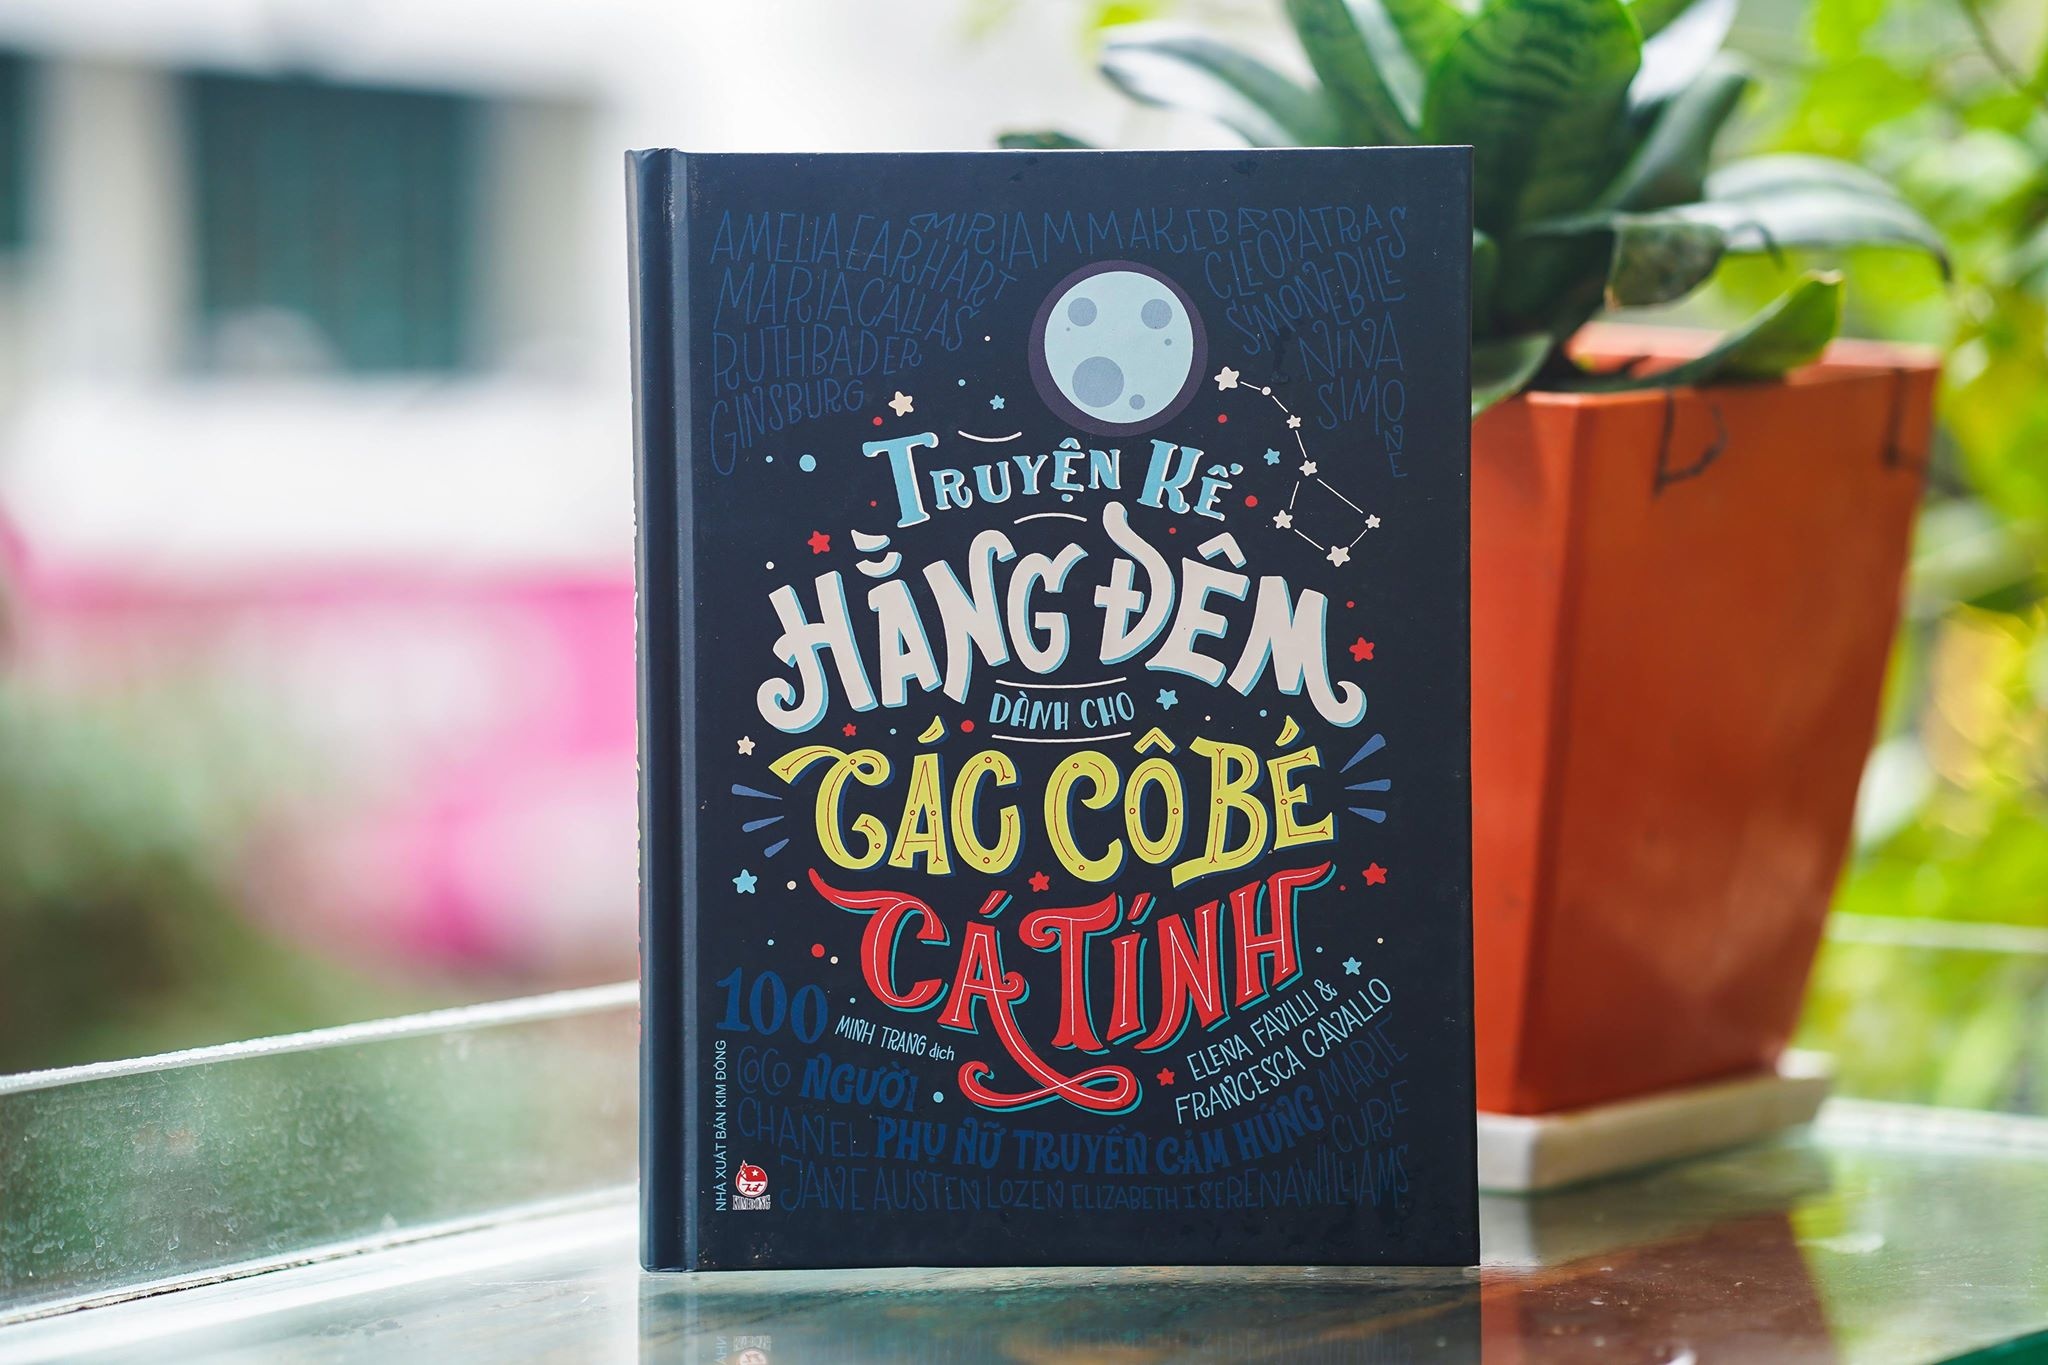 AMELIA EARHART
MIRIAM MAKEBA
CLEOPATRA
SIMONE BILES
MARIA CALLAS
RUTH BADER
GINSBURG
NINA
SIMONE
TRUYỆN KỂ
HẰNG ĐÊM
DÀNH CHO
CÁC CÔ BÉ
CÁ TÍNH
100
NGƯỜI
PHỤ NỮ TRUYỀN CẢM HỨNG
MINH TRANG dịch
ELENA FAVILLI &
FRANCESCA CAVALLO
COCO
CHANEL
MARIE
CURIE
JANE AUSTEN LOZEN ELIZABETH I SERENA WILLIAMS
NHÀ XUẤT BẢN KIM ĐỒNG
KIM ĐỒNG